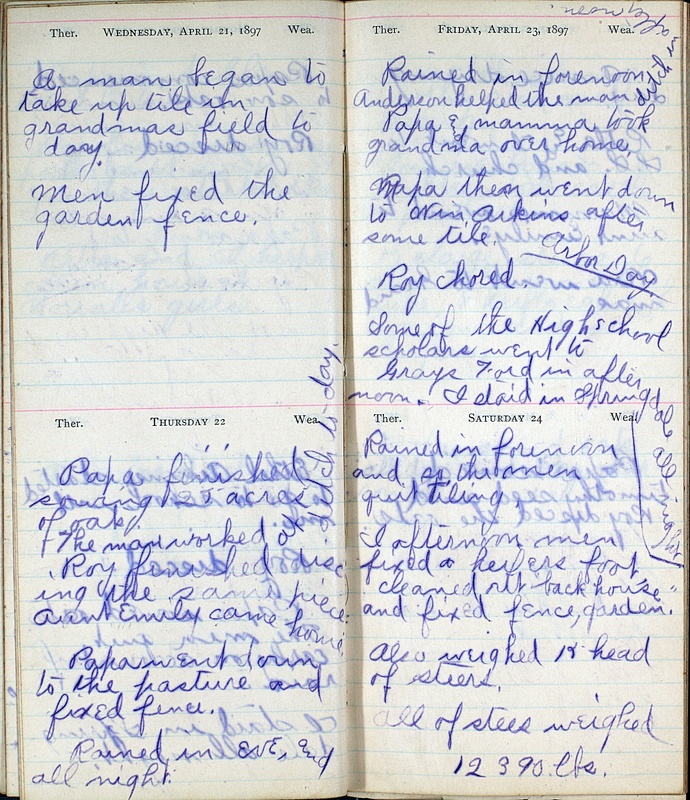 Ther. WEDNESDAY, APRIL 21, 1897 Wea.
A man began to
take up tile in
grandmas field to
day.
Men fixed the
garden fence.
Ther. THURSDAY 22 Wea.
Papa finished
sowing 25 acres
of oats.
The man worked at ditch to-day.
Roy finished disc
ing the same piece.
Aunt Emily came home.
Papa went down
to the pasture and
fixed fence.
Rained in eve, and
all night.
Ther. FRIDAY, APRIL 23, 1897 Wea.
Rained in forenoon.
Anderson helped the man ditch in
Papa & mamma took
grandma over home
Papa then went down
to Win Aikins after
some tile. Arbor Day
Roy chored.
Some of the Highschool
scholars went to
Grays Ford in after
noon. I staid in Springdale all night
Ther. SATURDAY 24 Wea.
Rained in forenoon
and so the men
quit tiling.
I afternoon men
fixed a heifers foot
cleaned out "back house"
and fixed fence, garden.
Also weighed 12 head
of steers.
all of stees weighed
12390 lbs.